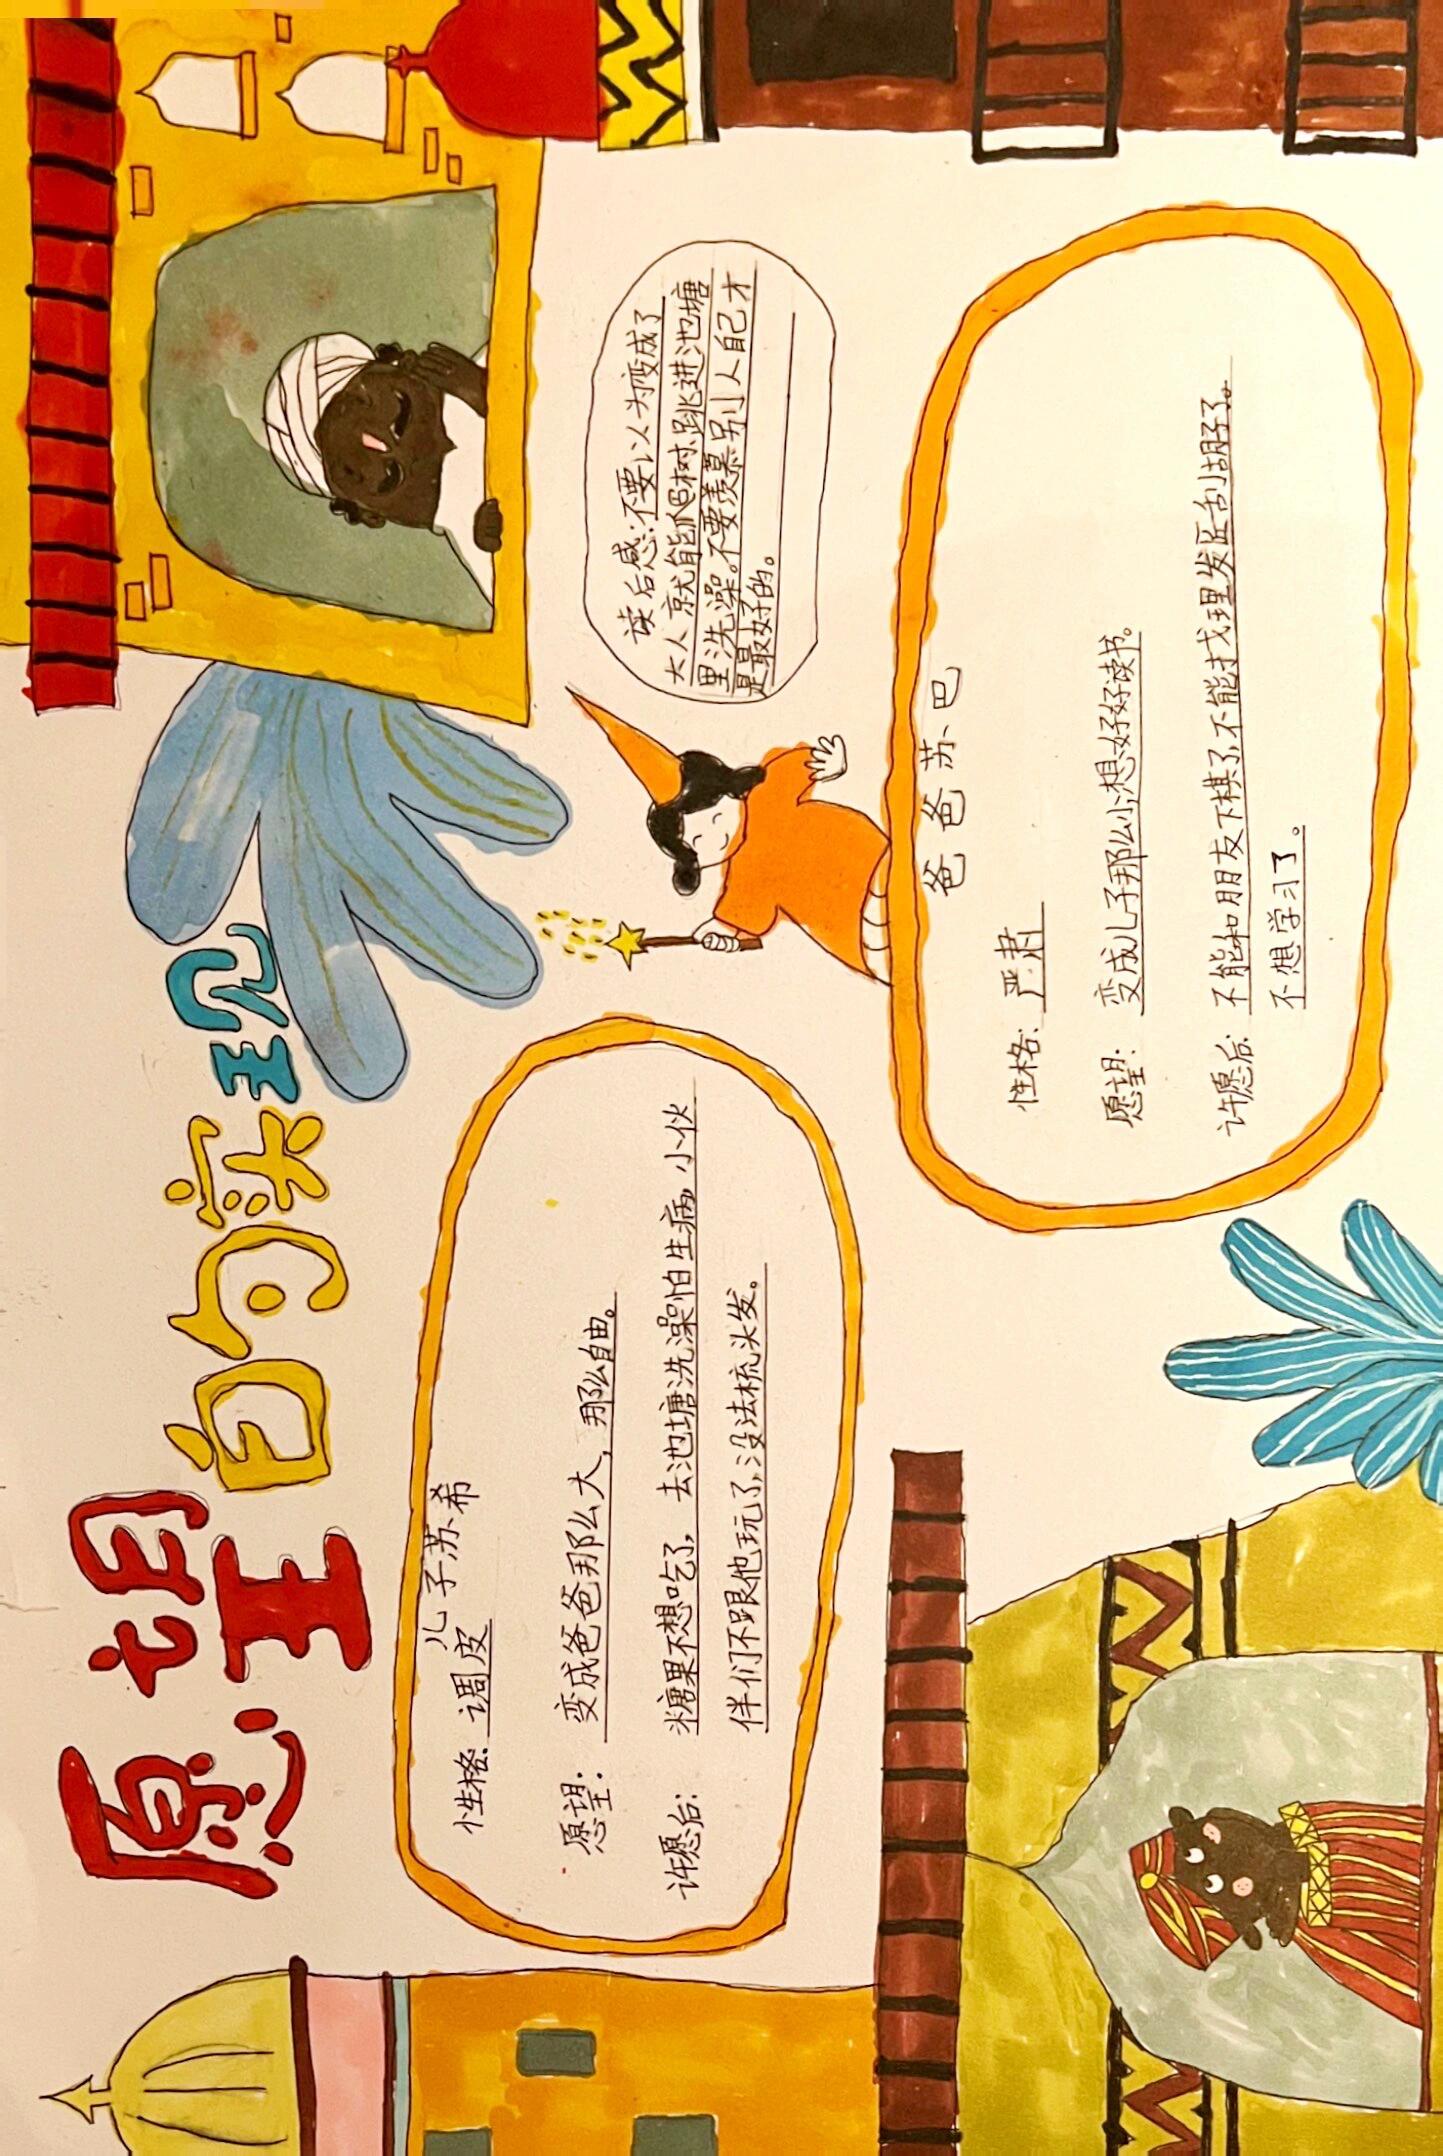 愿望的实现
儿子苏希
性格：调皮
愿望：变成爸爸那么大，那么自由。
许愿后：糖果不想吃了，去池塘洗澡怕生病，小伙
伴们不跟他玩了，没法梳头发。
读后感：不要以为变成了
大人就能爬树跳进池塘
里洗澡。不要羡慕别人自己才
是最好的。
爸爸苏巴
性格：严肃
愿望：变成儿子那么小，想好好读书。
许愿后：不能和朋友下棋了，不能找理发匠刮胡子了。
不想学习了。